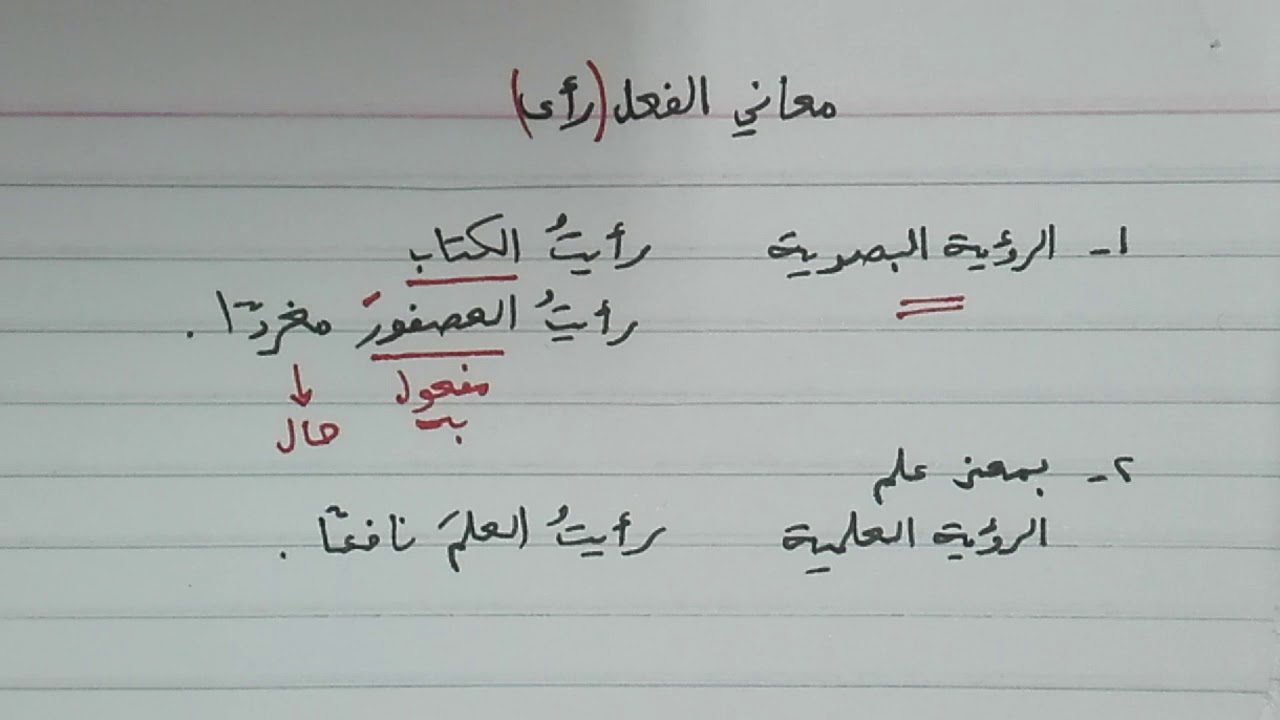 معاني الفعل (رأى)
١- الرؤية البصرية رأيتُ الكتاب
رأيتُ العصفورَ مغردًا .
مفعول
به
حال
٢- بمعنى علم
الرؤية العلمية رأيتُ العلمَ نافعًا .